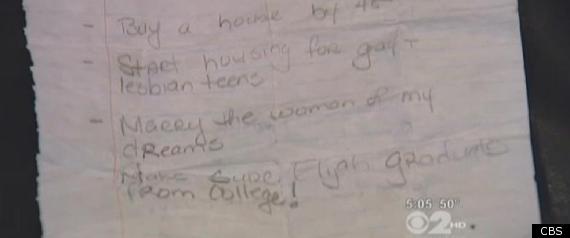 - Buy a house by 45
- Start housing for gay +
lesbian teens
- Marry the woman of my
dreams
Make sure Elijah graduates
from college!
5:05 50°
2HD
CBS